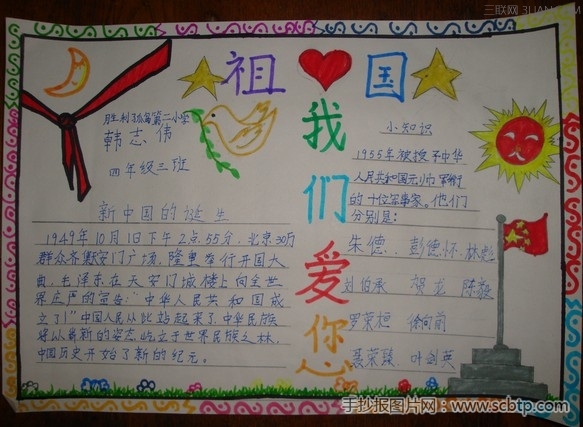 三联网 3LIAN.COM
祖国
我们爱你
胜利 第二小学
韩志伟
四年级三班
新中国的诞生
1949年10月1日下午2点55分,北京30万
群众齐聚天安门广场,隆重举行开国大
典,毛泽东在天安门城楼上向全世
界庄严的宣告:"中华人民共和国成
立了!"中国人民从此站起来了,中华民族
将以崭新的姿态屹立于世界民族之林,
中国历史开始了新的纪元。
小知识
1955年被授予中华
人民共和国元帅军衔
的十位军事家。他们
分别是:
朱德、彭德怀、林彪
刘伯承 贺龙 陈毅
罗荣桓 徐向前
聂荣臻、叶剑英
手抄报图片网:www.scbtp.com